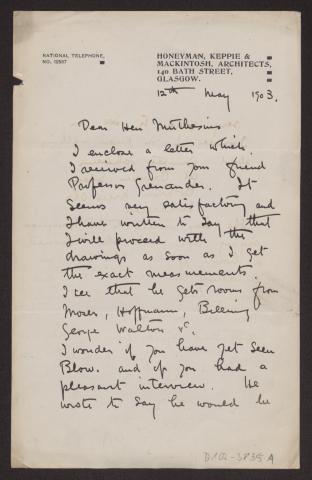 NATIONAL TELEPHONE,
HONEYMAN, KEPPIE &
MACKINTOSH, ARCHITECTS,
140 BATH STREET,
GLASGOW.
12th May 1903.
Dear Herr Muthesius
I enclose a letter which
I received from your friend
Professor Grenander. It
seems very satisfactory and
I have written to say that
I will proceed with the
drawings as soon as I get
the exact measurements.
I see that he gets rooms from
Moser, Hoffmann, Billing
George Walton &c.
I wonder if you have yet seen
Blow. and if you had a
pleasant interview. He
wrote to say he would be